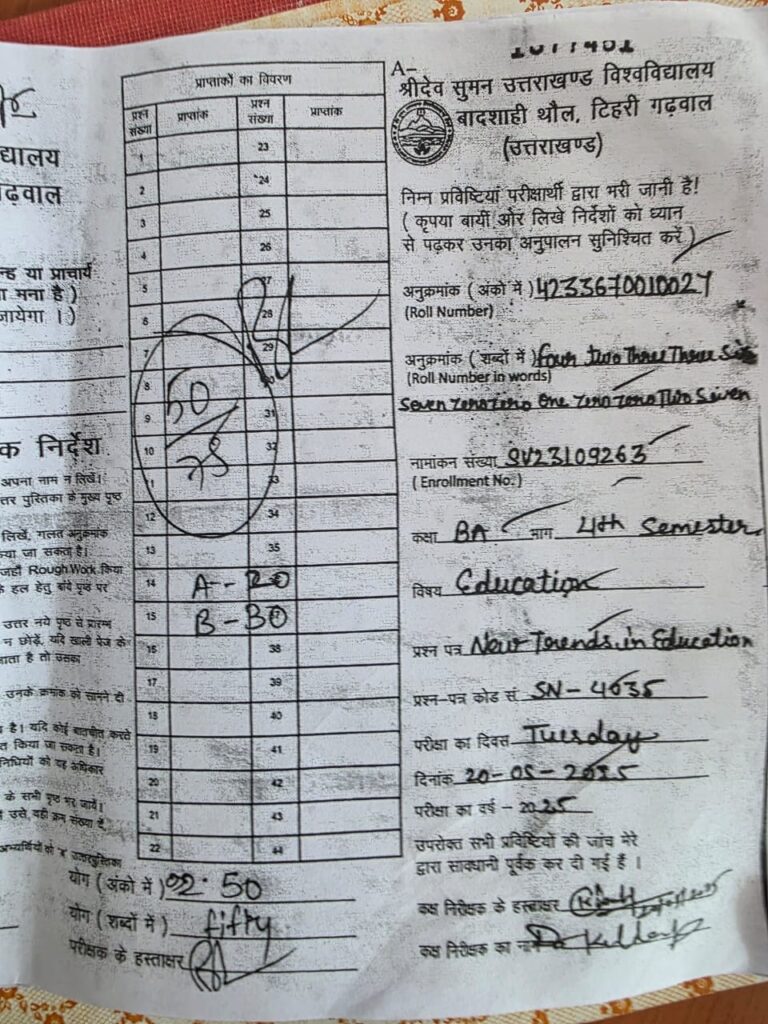 द्यालय
गढ़वाल
न्ह या प्राचार्य
ा मना है )
जायेगा । )
क निर्देश
अपना नाम न लिखें।
त्तर पुस्तिका के मुख्य पृष्ठ
लिखें, गलत अनुक्रमांक
किया जा सकता है।
जहाँ Rough Work किया
के हल हेतु बांये पृष्ठ पर
उत्तर नये पृष्ठ से प्रारम्भ
न छोड़ें, यदि खाली पेज के
जाता है तो उसका
उनके क्रमांक को सामने दी
है। यदि कोई बातचीत करते
त किया जा सकता है।
के सभी पृष्ठ भर जायें।
प्राप्ताकों का विवरण
प्रश्न संख्या प्राप्तांक प्रश्न संख्या प्राप्तांक
1 23
2 24
3 25
4 26
5 27
6 28
7 29
8 50 30
9 31
10 75 32
11 33
12 34
13 35
14 A - 20
15 B - 30
16 38
17 39
18 40
19 41
20 42
21 43
22 44
योग ( अंको में ) 50
योग ( शब्दों में ) fifty
परीक्षक के हस्ताक्षर
A-
श्रीदेव सुमन उत्तराखण्ड विश्वविद्यालय
बादशाही थौल, टिहरी गढ़वाल
(उत्तराखण्ड)
निम्न प्रविष्टियां परीक्षार्थी द्वारा भरी जानी है!
( कृपया बायीं ओर लिखे निर्देशों को ध्यान
से पढ़कर उनका अनुपालन सुनिश्चित करें )
अनुक्रमांक ( अंकों में ) 4233670010027
(Roll Number)
अनुक्रमांक ( शब्दों में ) four two Three Three Six
(Roll Number in words)
Seven Zero Zero One Zero Zero Two Seven
नामांकन संख्या SV23109263
( Enrollment No.)
कक्षा BA भाग 4th Semester
विषय Education
प्रश्न पत्र New Trends in Education
प्रश्न-पत्र कोड सं SN - 4635
परीक्षा का दिवस Tuesday
दिनांक 20-05-2025
परीक्षा का वर्ष - 2025
उपरोक्त सभी प्रविष्टियों की जांच मेरे
द्वारा सावधानी पूर्वक कर दी गई हैं ।
कक्ष निरीक्षक के हस्ताक्षर
कक्ष निरीक्षक का नाम